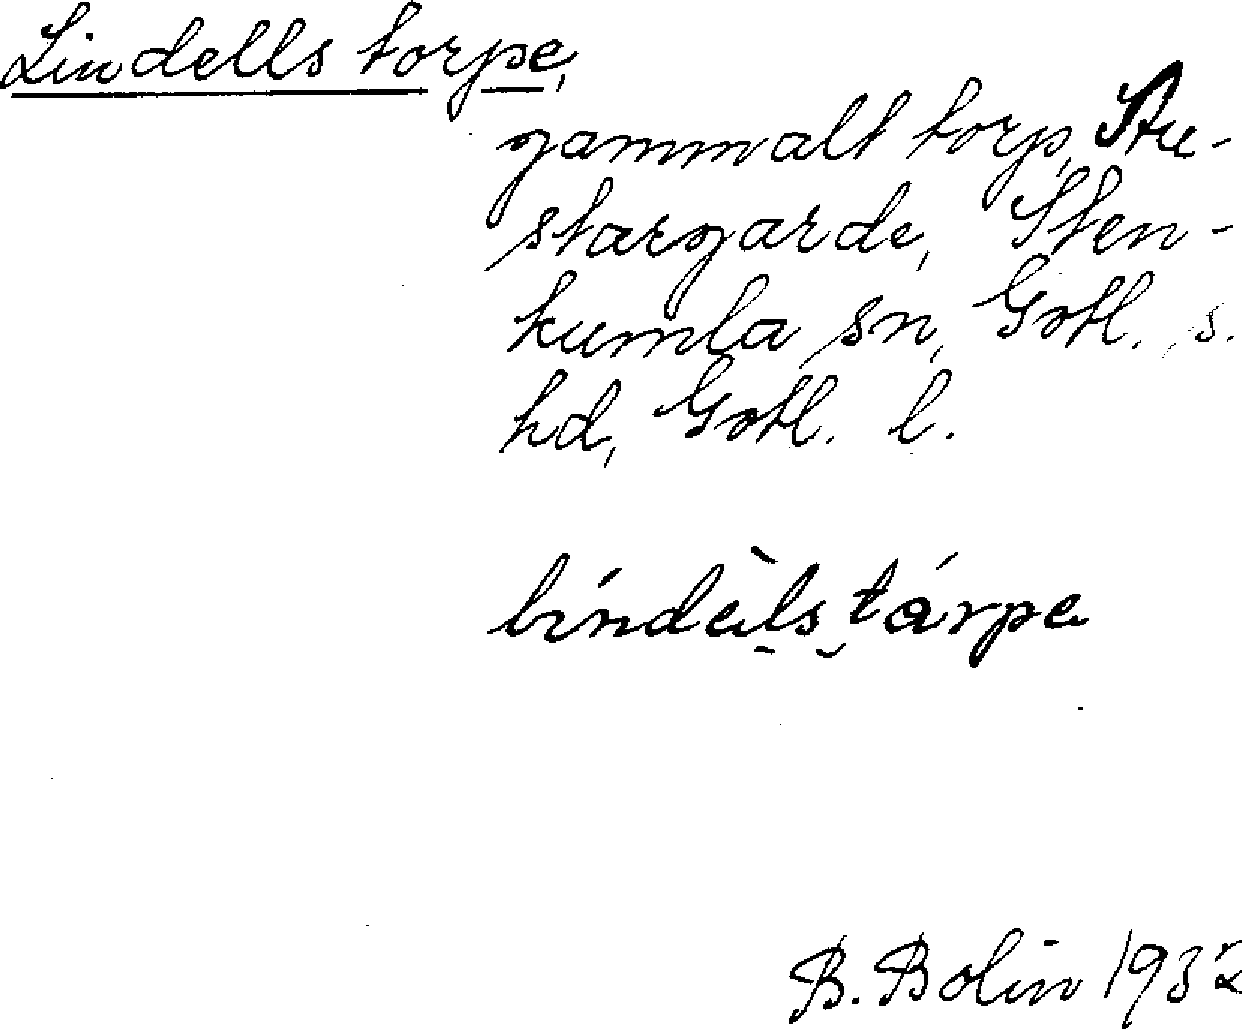 Lindells torpe,
gammalt torp, Stu-
stargarde, Sten-
kumla sn, Gotl. s.
hd, Gotl. l.
B. Bolin 1932